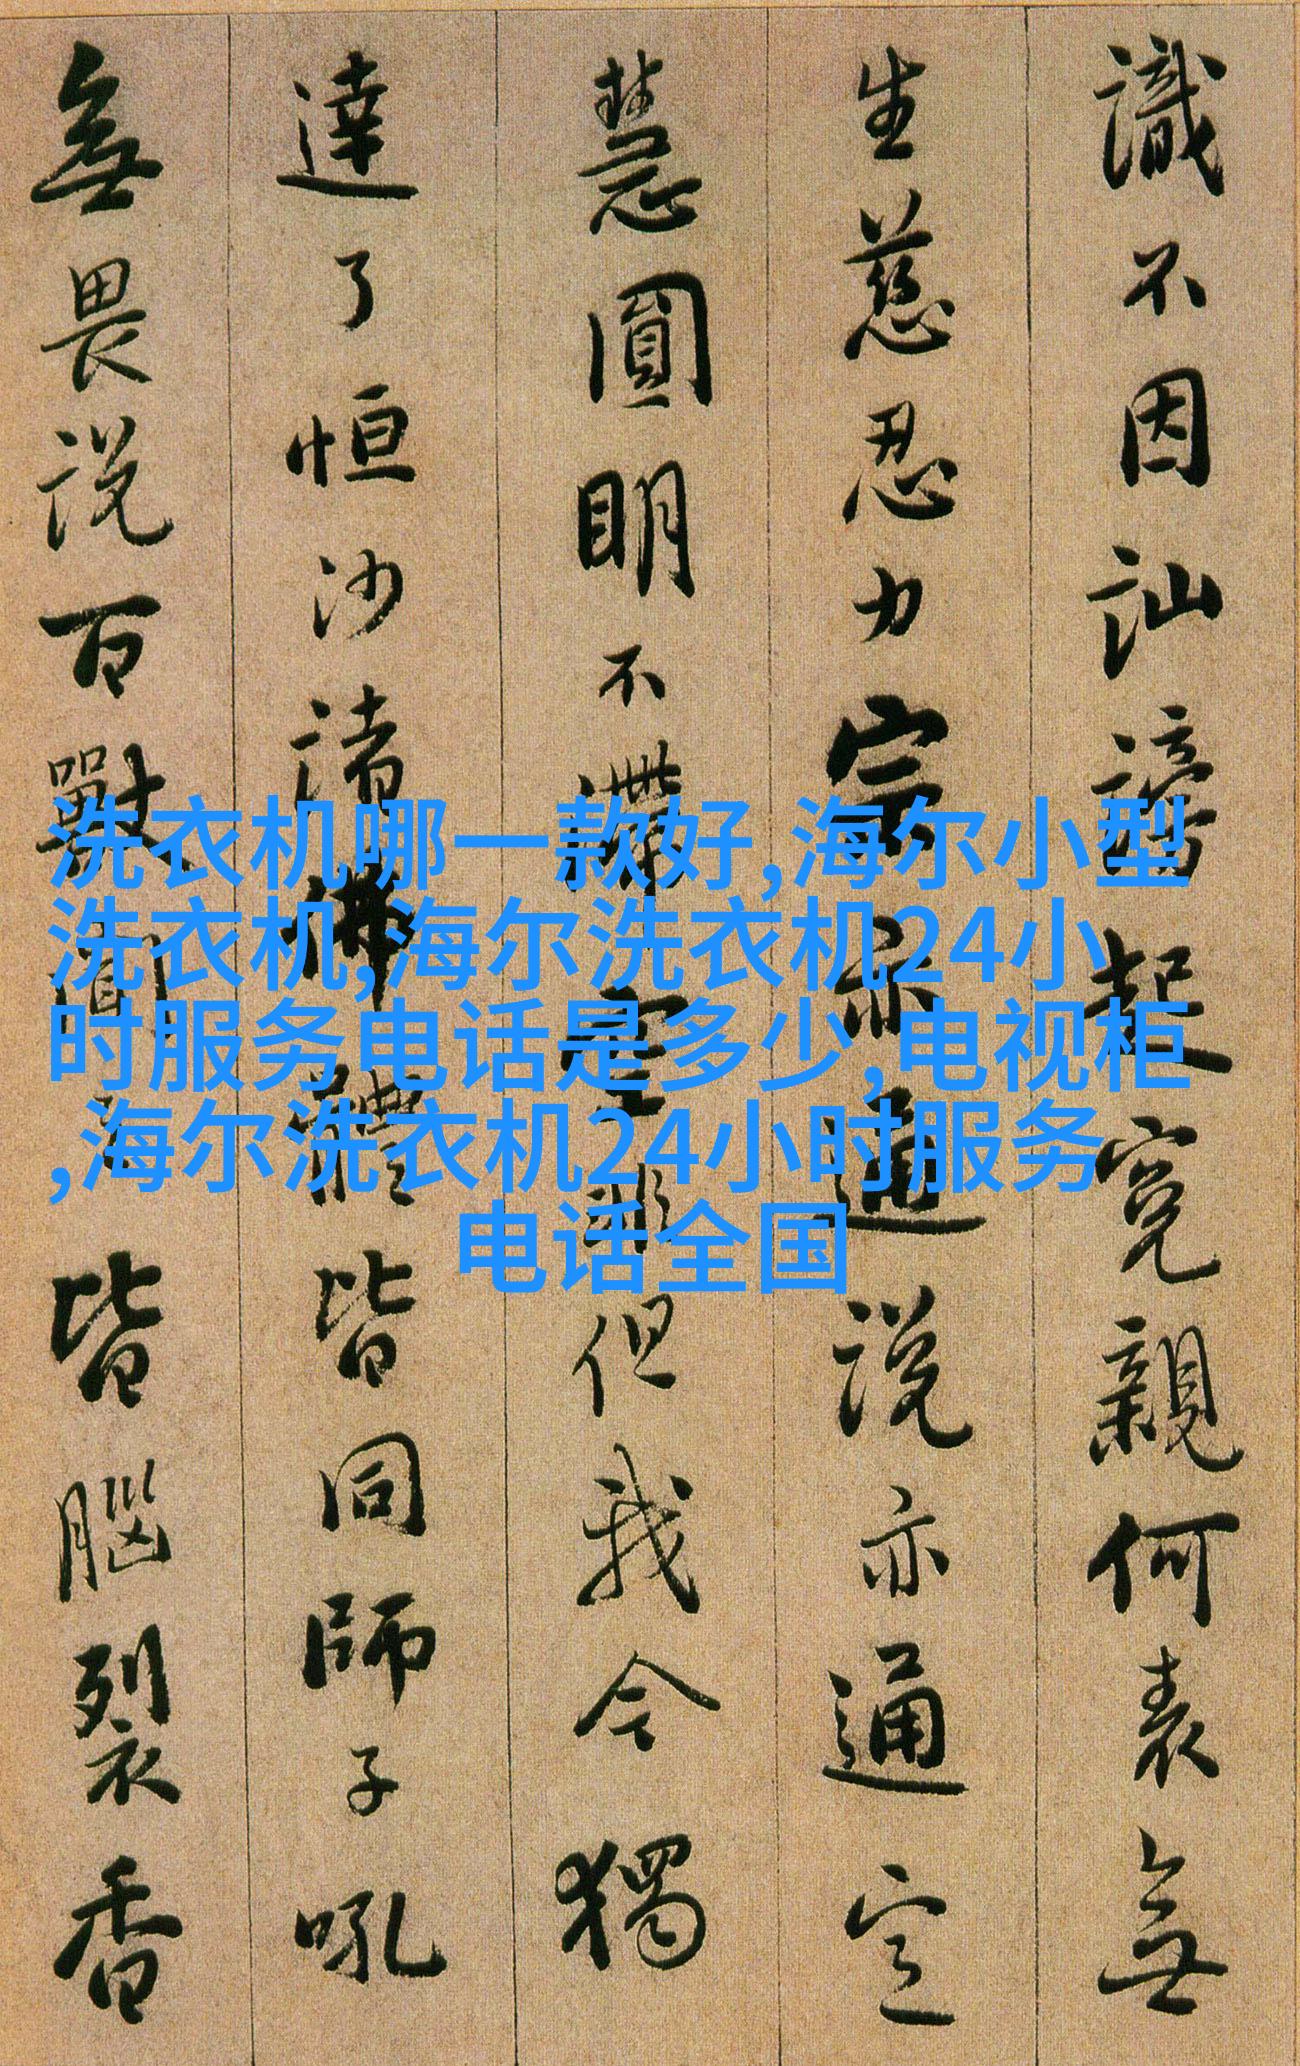 識不因訕謗起寃親何表無
生慈忍力宗亦通說亦通定
慧圓明不滯空非但我今獨
達了恒沙諸佛體皆同師子吼
無畏説百獸聞之皆腦裂香
洗衣机哪一款好,海尔小型
洗衣机,海尔洗衣机24小
时服务电话是多少,电视柜
,海尔洗衣机24小时服务
电话全国